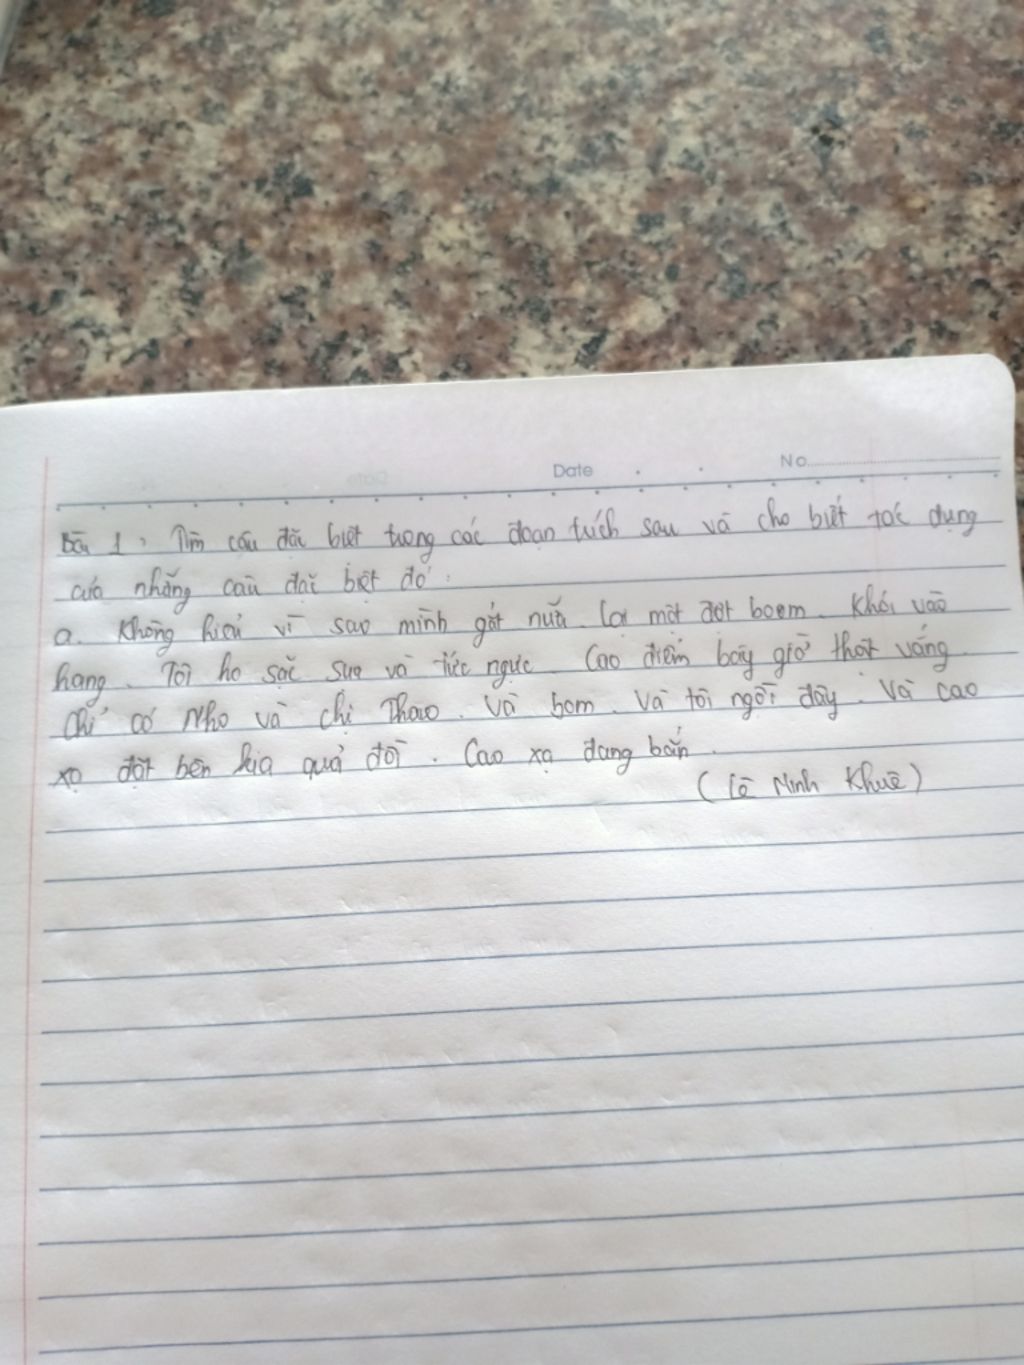 Date . . No.
Bài 1: Tìm câu đặc biệt trong các đoạn trích sau và cho biết tác dụng
của những câu đặc biệt đó:
a. Không hiểu vì sao mình gắt nữa. Lại một đợt boem. Khói vào
hang. Tôi ho sặc sụa và tức ngực. Cao điểm bây giờ thật vắng.
Chỉ có Nho và chị Thao. Và bom. Và tôi ngồi đây. Và cao
xạ đặt bên kia quả đồi. Cao xạ đang bắn.
(Lê Minh Khuê)